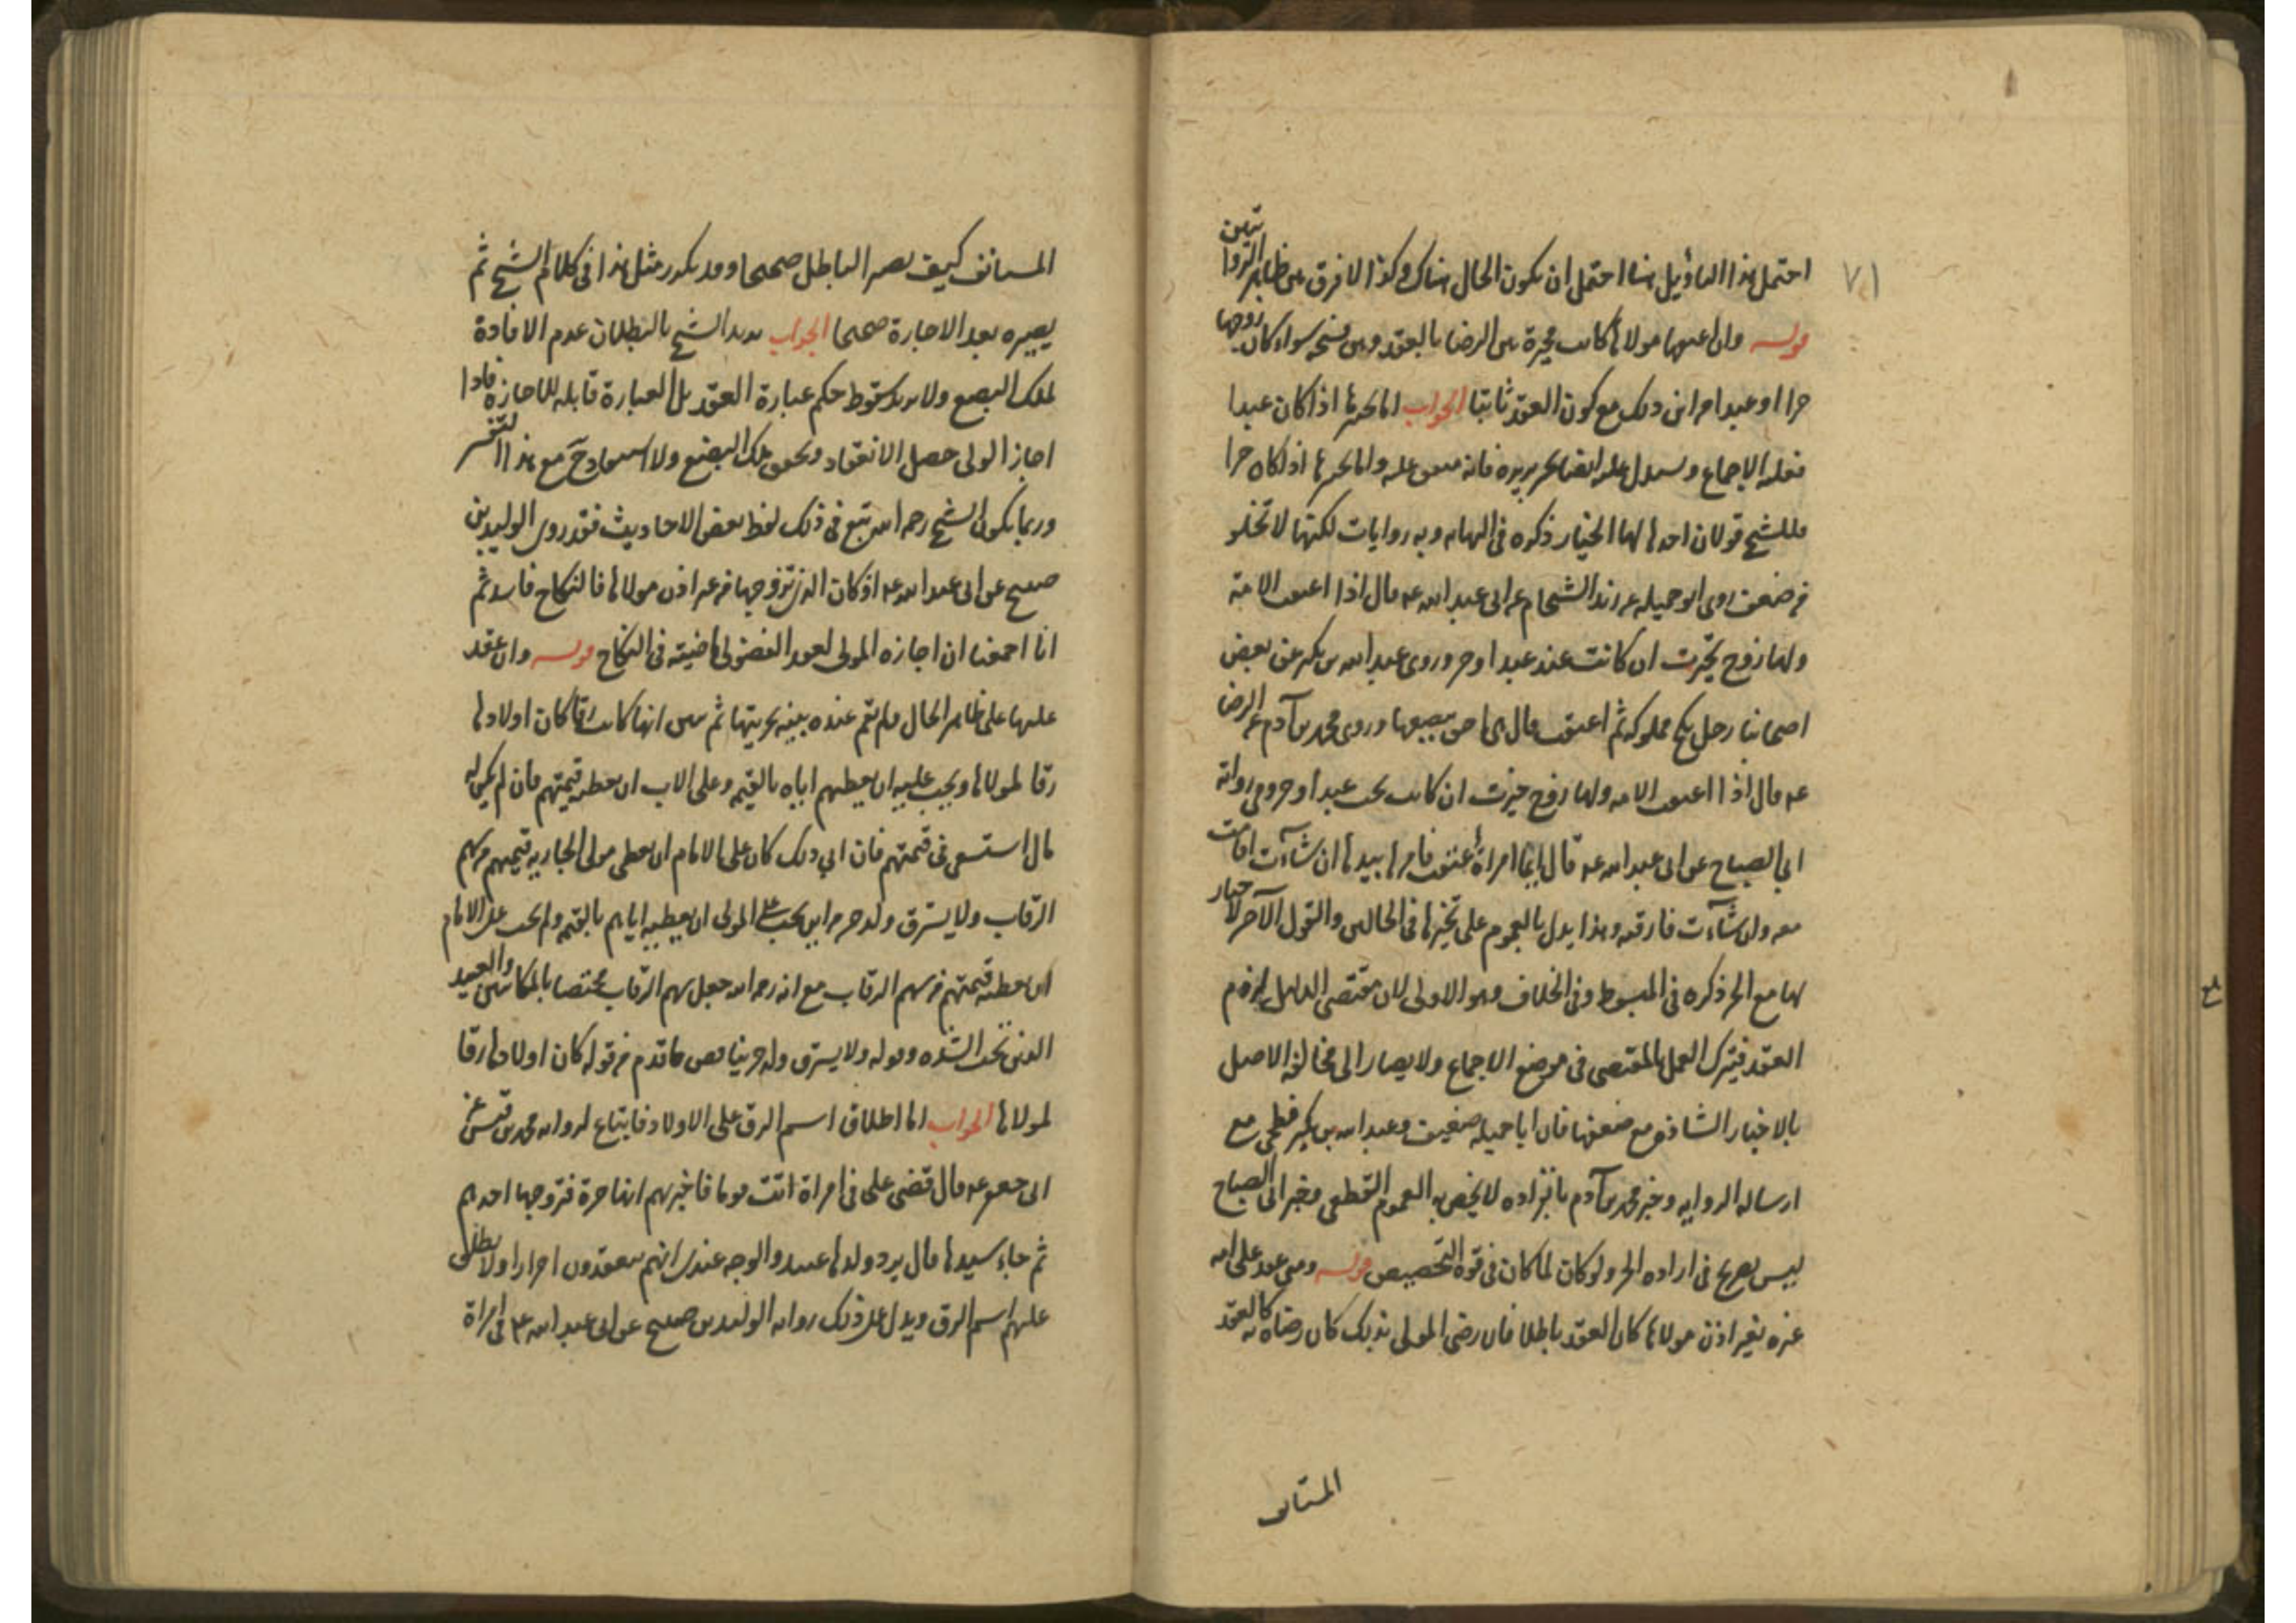 ٧١
احتمل هذا التأويل هنا احتمل ان يكون الحال هناك وكذا لا فرق بين ظاهر الروايتين
قوله وان اعتقها مولاها كانت مخيرة بين الرضا بالعقد وبين فسخه سواء كان زوجها
حرا او عبدا من اين ذلك مع كون العقد ثابتا الجواب اما تخيرها اذا كان عبدا
فعليه الاجماع ويدل عليه ايضا خبر بريره فانه متفق عليه واما تخيرها اذا كان حرا
فللشيخ قولان احدها لها الخيار ذكره في النهايه وبه روايات لكنها لا تخلو
من ضعف روى ابو جميله عن زيد الشحام عن ابى عبد الله عه قال اذا اعتقت الامة
ولها زوج خيرت ان كانت عند عبد او حر وروى عبد الله بن بكير عن بعض
اصحابنا رجل نكح مملوكه ثم اعتقت قال هى احق ببضعها وروى محمد بن آدم عن الرضا
عه قال اذا اعتقت الامه ولها زوج خيرت ان كانت تحت عبد او حر وفى روايه
ابي الصباح عن ابى عبد الله عه قال ايما امرأة أعتقت فامرها بيدها ان شآءت اقامت
معه وان شآءت فارقته وهذا يدل بالعموم على تخيرها في الحالين والقول الآخر لا خيار
لها مع الحر ذكره في المبسوط وفى الخلاف وهو الاولى لان مقتضى الدليل لزوم
العقد فيترك العمل بالمقتضى في موضع الاجماع ولا يصار الى مخالفة الاصل
بالاخبار الشاذه مع ضعفها فان ابا جميله ضعيف وعبد الله بن بكير فطحى مع
ارساله الروايه وخبر محمد بن آدم بانفراده لا يخص به العموم القطعى وخبر ابى الصباح
ليس بصريح فى اراده الحر ولو كان لما كان فى قوة التخصيص قوله ومتى عقد على امه
غيره بغير اذن مولاها كان العقد باطلا فان رضى المولى بذلك كان رضاه به كالعقد
المستانف
المستانف كيف يصير الباطل صحيحا وقد تكرر مثل هذا فى كلام الشيخ ثم
يصيره بعد الاجازة صحيحا الجواب يريد الشيخ بالبطلان عدم الافادة
لملك البضع ولا يريد سقوط حكم عبارة العقد بل العبارة قابله للاجازه فاذا
اجاز الولى حصل الانعقاد وتحقق ملك البضع ولا استبعاد ح مع هذا التفسير
وربما يكون الشيخ رحمه الله تبع فى ذلك لفظ بعض الاحاديث فقد روى الوليد بن
صبيح عن ابى عبد الله عه اذ كان الذى تزوجها من غير اذن مولاها فالنكاح فاسد ثم
انا اجمعنا ان اجازه المولى لعقد الفضولى ماضيته فى النكاح قوله وان عقد
عليها على ظاهر الحال ولم تقم عنده بينه بحريتها ثم تبين انها كانت رقا كان اولادها
رقا لمولاها ويجب عليه ان يعطيهم اباه بالقيمه وعلى الاب ان يعطيه قيمتهم فان لم يكن له
مال استسعى فى قيمتهم فان ابى ذلك كان على الامام ان يعطى مولى الجاريه قيمتهم من سهم
الرقاب ولا يسترق ولد حر من اين يجب على المولى ان يعطيه اياهم بالقيمه ولم يجب على الامام
ان يعطيه قيمتهم من سهم الرقاب مع انه رحمه الله جعل سهم الرقاب مختصا بالمكاتبين والعبيد
الذين تحت الشدة وقوله ولا يسترق ولد حر يناقض ما تقدم من قوله كان اولادها رقا
لمولاها الجواب اما اطلاق اسم الرق على الاولاد فاتباع لروايه محمد بن قيس عن
ابى جعفر عه قال قضى على فى امراة اتت قوما فاخبرتهم انها حرة فتزوجها احدهم
ثم جاء سيدها قال يرد ولدها عبيدا والوجه عندى انهم ينعقدون احرارا ولا يطلق
عليهم اسم الرق ويدل على ذلك روايه الوليد بن صبيح عن ابى عبد الله عه فى امراة